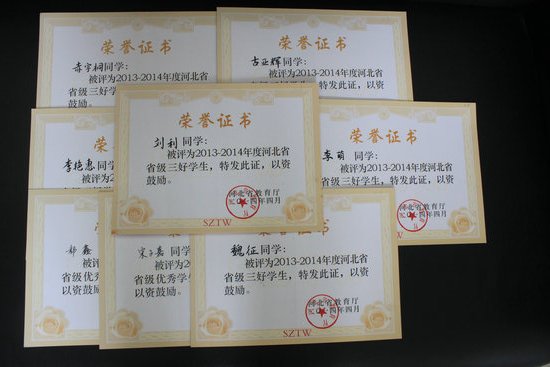 荣誉证书
李宇桐同学:
被评为2013-2014年度河北省
鼓励。
荣誉证书
古亚辉同学:
被评为2013-2014年度河北省
特发此证，以资
李艳惠同学
被评为
省级三好
鼓励。
荣誉证书
刘利同学:
被评为2013-2014年度河北省
省级三好学生，特发此证，以资
鼓励。
河北省教育厅
二〇一四年四月
SZTW
证书
李萌同学:
2013-2014年度河北省
特发此证，以资
河北省教育厅
二〇一四年四月
郑鑫
被评为
省级优秀
以资鼓励。
宋子嘉同学
被评为
省级优秀学
以资鼓励。
魏征同学:
被评为2013-2014年度河北省
省级三好学生，特发此证，以资
鼓励。
河北省教育厅
二〇一四年四月
SZTW